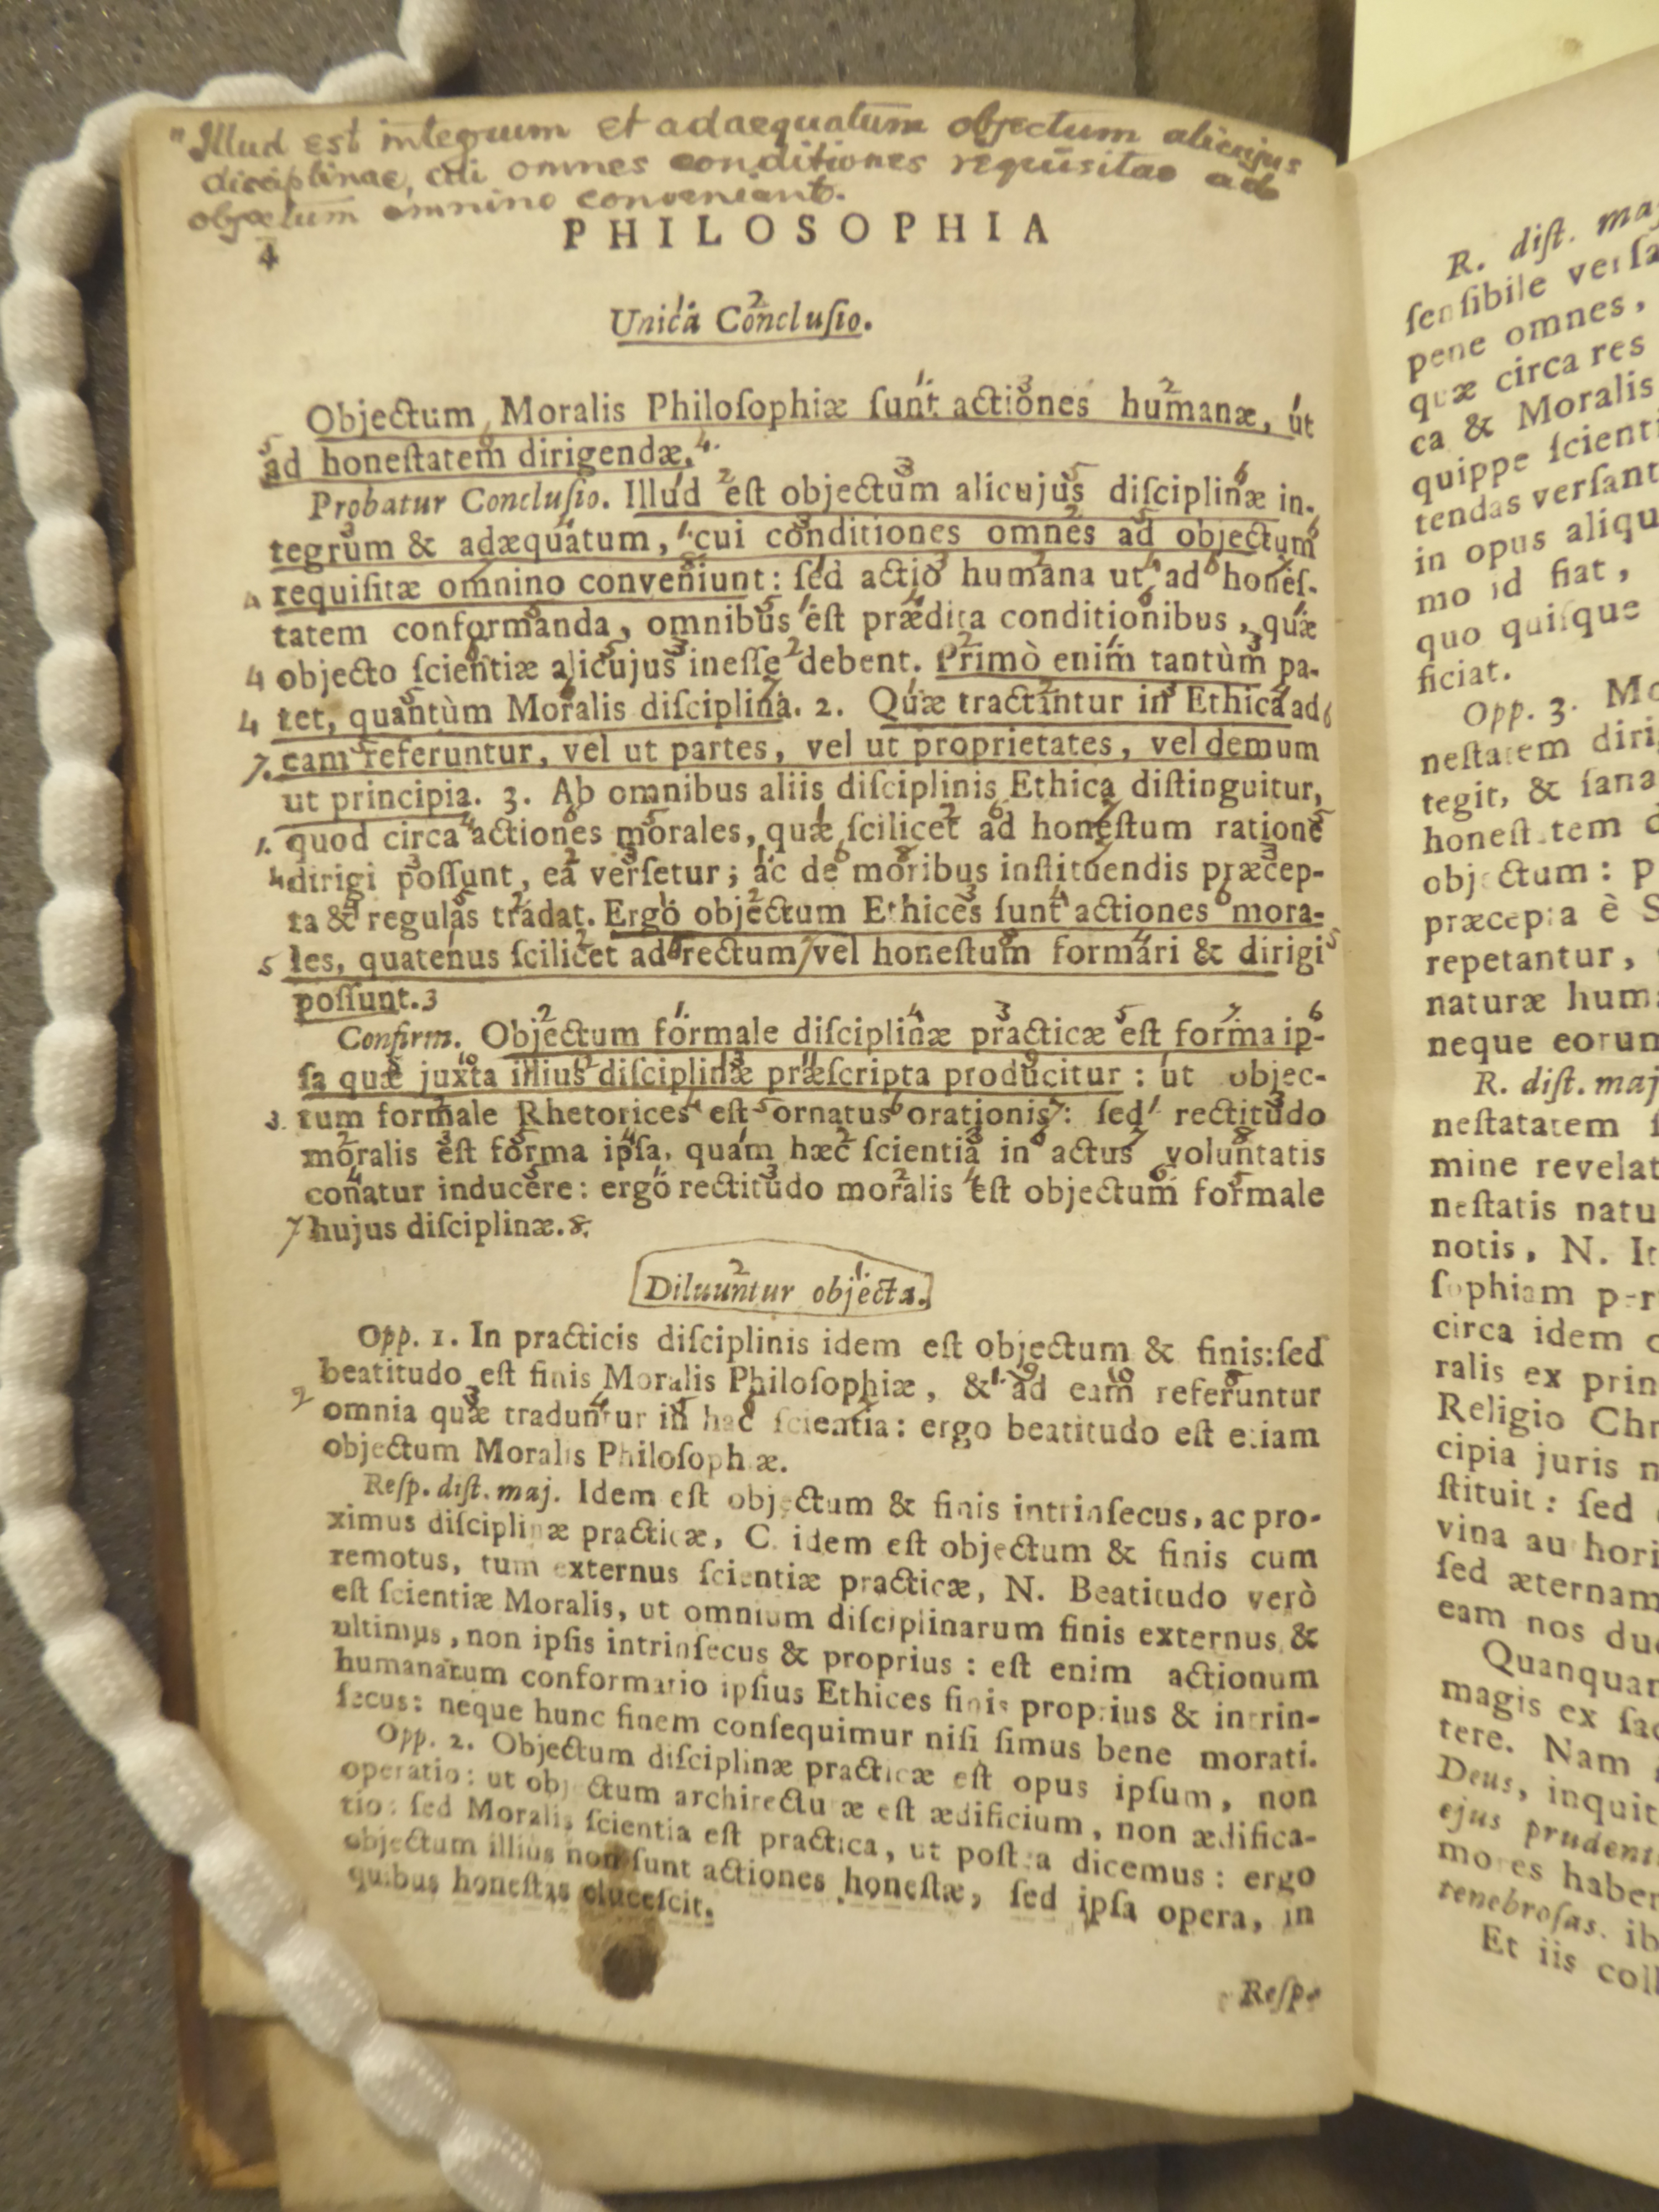 "Illud est integrum et adaequatum objectum alicujus
disciplinae, cui omnes conditiones requisitae ad
objectum omnino conveniant.
4
PHILOSOPHIA
Unica Concluſio.
Objectum Moralis Philoſophiæ ſunt actiones humanæ, ut
ad honeſtatem dirigendæ.
Probatur Concluſio. Illud eſt objectum alicujus diſciplinæ in-
tegrum & adæquatum, cui conditiones omnes ad objectum
requiſitæ omnino conveniunt: ſed actio humana ut ad honeſ-
tatem conformanda, omnibus eſt prædita conditionibus, quæ
objecto ſcientiæ alicujus ineſſe debent. Primò enim tantùm pa-
tet, quantùm Moralis diſciplina. 2. Quæ tractantur in Ethica ad
eam referuntur, vel ut partes, vel ut proprietates, vel demum
ut principia. 3. Ab omnibus aliis diſciplinis Ethica diſtinguitur,
quod circa actiones morales, quæ ſcilicet ad honeſtum ratione
dirigi poſſunt, ea verſetur; ac de moribus inſtituendis præcep-
ta & regulas tradat. Ergo objectum Ethices ſunt actiones mora-
les, quatenus ſcilicet ad rectum vel honeſtum formari & dirigi
poſſunt.
Confirm. Objectum formale diſciplinæ practicæ eſt forma ip-
ſa quæ juxta illius diſciplinæ præſcripta producitur: ut objec-
tum formale Rhetorices eſt ornatus orationis: ſed rectitudo
moralis eſt forma ipſa, quam hæc ſcientia in actus voluntatis
conatur inducere: ergo rectitudo moralis eſt objectum formale
hujus diſciplinæ.
Diluuntur objecta.
Opp. 1. In practicis diſciplinis idem eſt objectum & finis: ſed
beatitudo eſt finis Moralis Philoſophiæ, & ad eam referuntur
omnia quæ traduntur in hac ſcientia: ergo beatitudo eſt etiam
objectum Moralis Philoſophiæ.
Reſp. diſt. maj. Idem eſt objectum & finis intrinſecus, ac pro-
ximus diſciplinæ practicæ, C. idem eſt objectum & finis cum
remotus, tum externus ſcientiæ practicæ, N. Beatitudo verò
eſt ſcientiæ Moralis, ut omnium diſciplinarum finis externus &
ultimus, non ipſis intrinſecus & proprius: eſt enim actionum
humanarum conformatio ipſius Ethices finis proprius & intrin-
ſecus: neque hunc finem conſequimur niſi ſimus bene morati.
Opp. 2. Objectum diſciplinæ practicæ eſt opus ipſum, non
operatio: ut objectum architecturæ eſt ædificium, non ædifica-
tio: ſed Moralis ſcientia eſt practica, ut poſtea dicemus: ergo
objectum illius non ſunt actiones honeſtæ, ſed ipſa opera, in
quibus honeſtas eluceſcit.
Reſp.
R. diſt.
ſenſibile
pene omnes,
quæ circa res
ca & Moralis
quippe
tendas
in opus
mo id fiat,
quo quiſque
ficiat.
Opp. 3.
neſtatem
tegit, &
honeſtatem
objectum:
præcepta è
repetantur,
naturæ
neque eorum
R. diſt. maj
neſtatatem
mine
neſtatis
notis, N.
ſophiam
circa idem
ralis ex
Religio
cipia juris
ſtituit: ſed
vina
ſed
eam nos
magis ex
tere. Nam
Deus, inquit
ejus
mores
tenebroſas.
Et iis